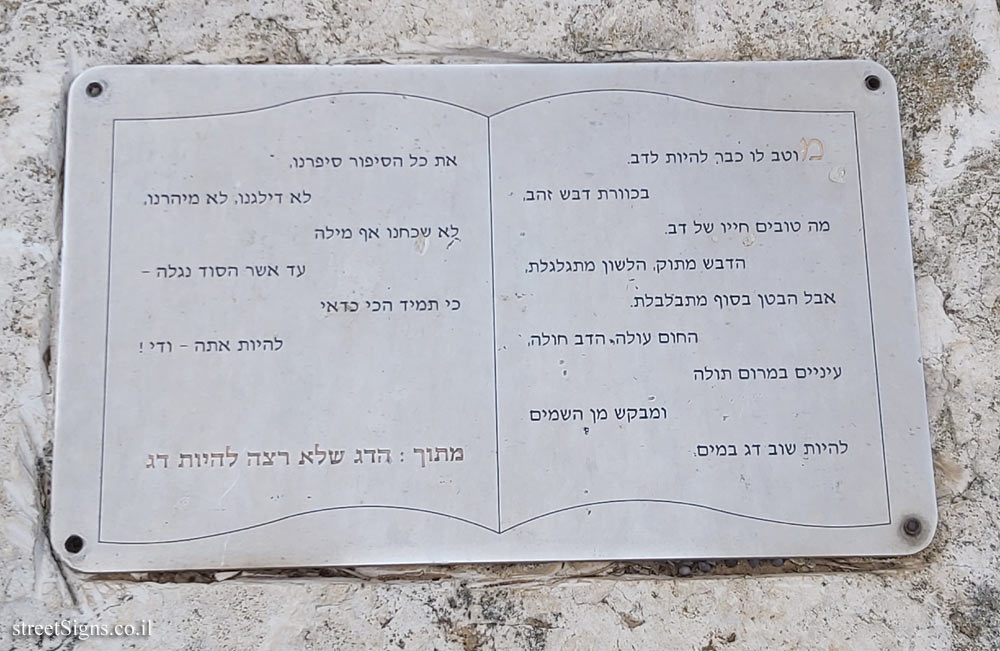 מוטב לו כבר להיות לדב.
בכוורת דבש זהב,
מה טובים חייו של דב.
הדבש מתוק, הלשון מתגלגלת,
אבל הבטן בסוף מתבלבלת.
החום עולה, הדב חולה,
עיניים במרום תולה
ומבקש מן השמים
להיות שוב דג במים.
את כל הסיפור סיפרנו,
לא דילגנו, לא מיהרנו,
לא שכחנו אף מילה
עד אשר הסוד נגלה –
כי תמיד הכי כדאי
להיות אתה – ודי !
מתוך : הדג שלא רצה להיות דג
streetSigns.co.il